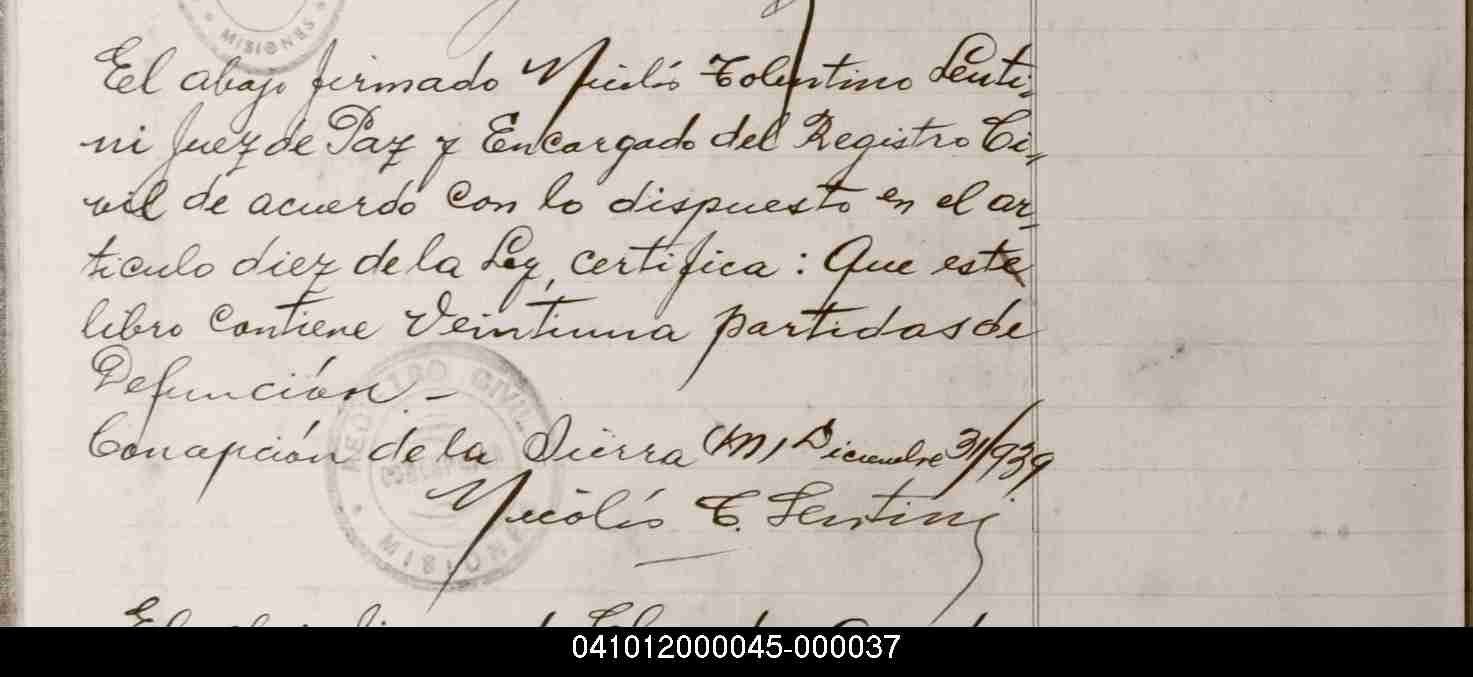 MISIONES
El abajo firmado Nicolás Tolentino Lenti-
ni Juez de Paz y Encargado del Registro Ci-
vil de acuerdo con lo dispuesto en el ar-
ticulo diez de la Ley, certifica: Que este
libro contiene Veintiuna partidas de
Defunción —
Concepción de la Sierra (M) Diciembre 31/939
Nicolás T. Lentini
REGISTRO CIVIL
MISIONES
041012000045-000037